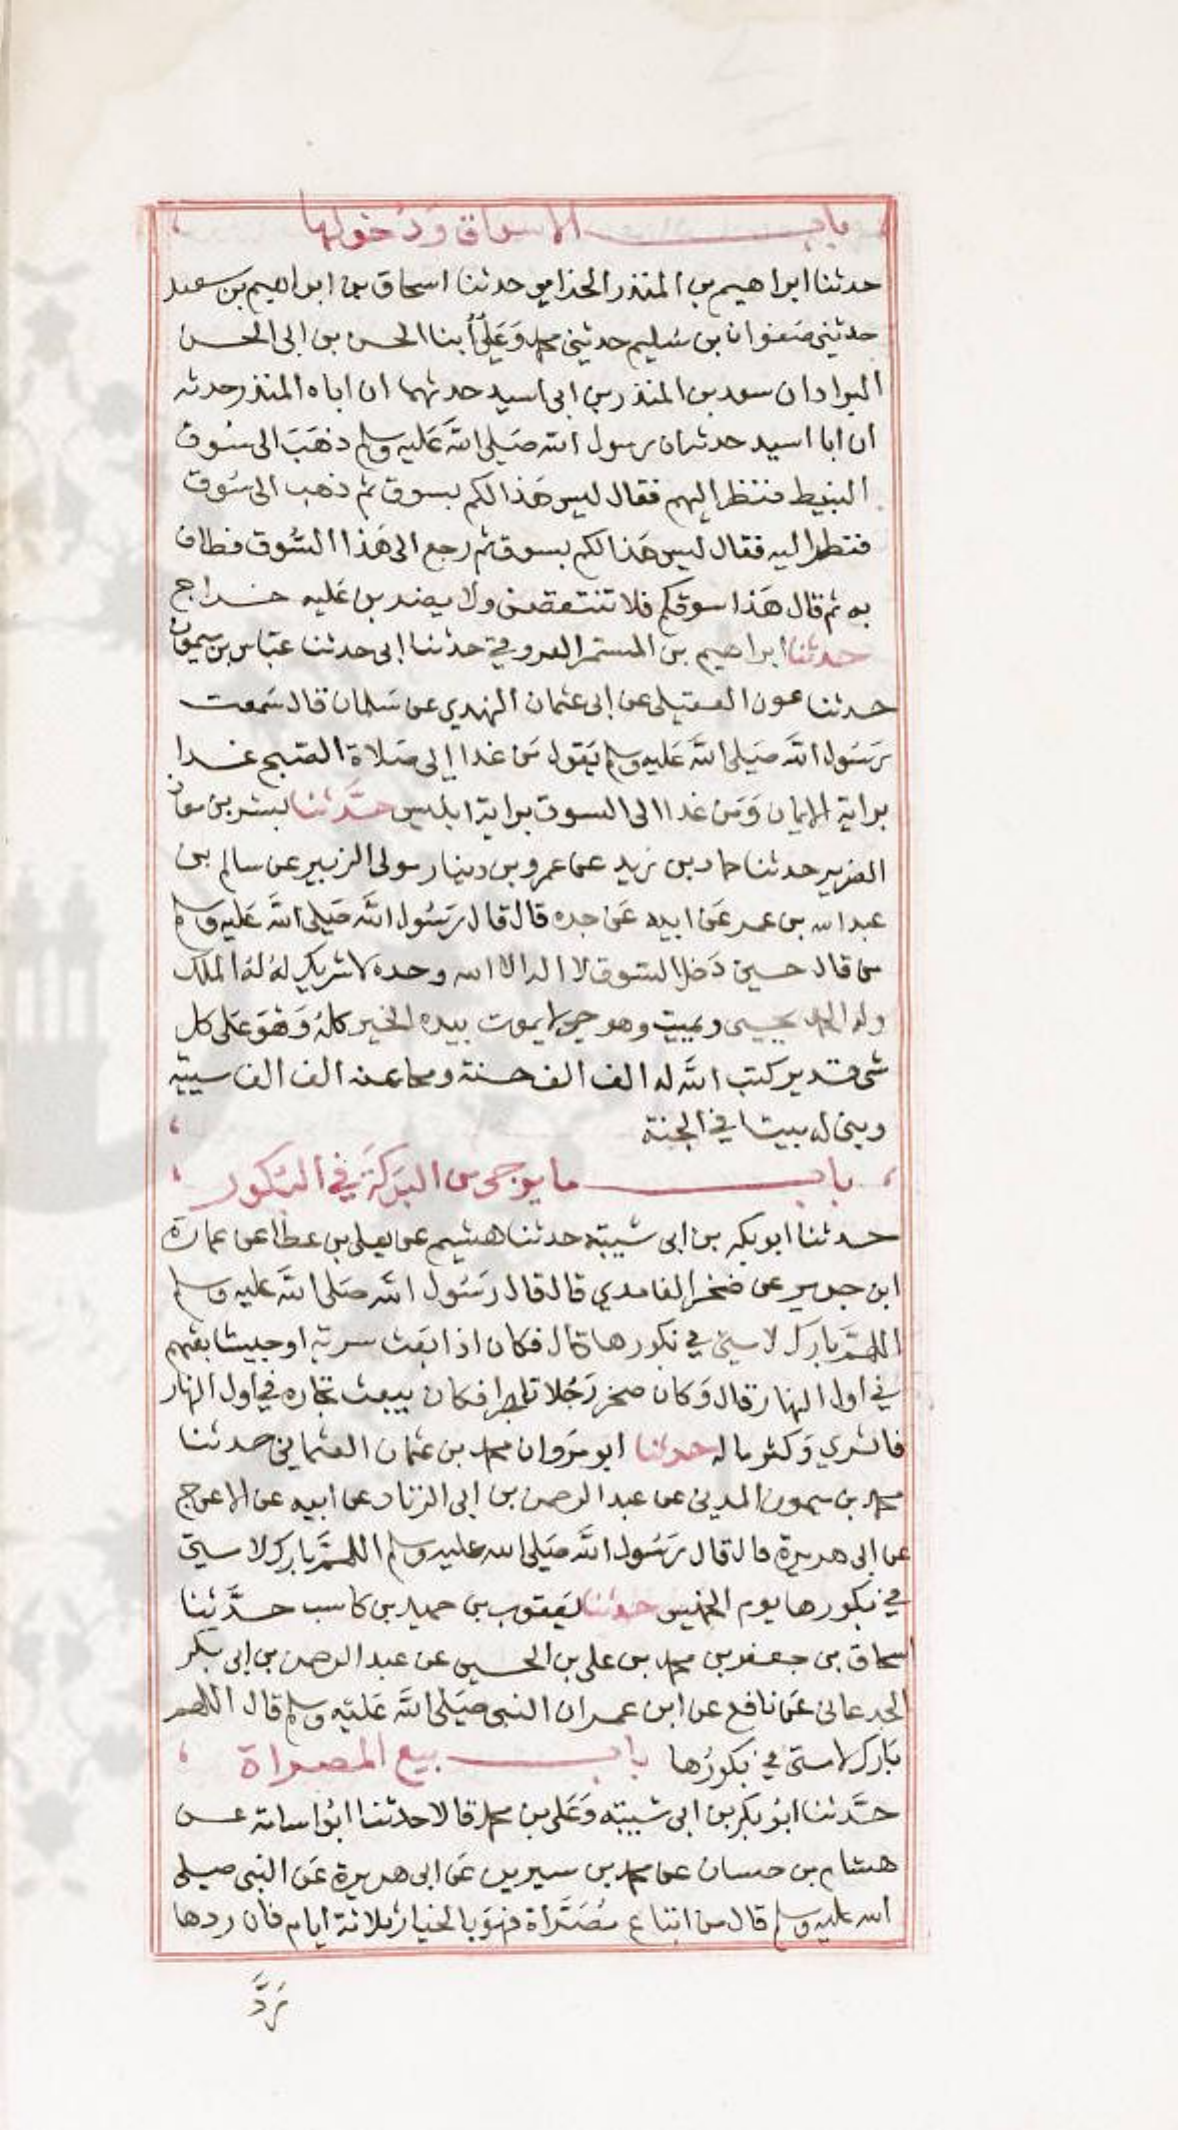 باب الاسواق ودخولها
حدثنا ابراهيم بن المنذر الحذامي حدثنا اسحاق بن ابراهيم بن سعيد
حدثني صفوان بن سليم حدثني محمد وَعَلِيّ أبنا الحسن بن ابى الحسن
البراد ان سعد بن المنذر بن ابى اسيد حدثهما ان اباه المنذر حدثه
ان ابا اسيد حدثه ان رسول الله صَلى اللهَ عَليه وسلم ذهَبَ الى سُوق
النبيط فنظر اليهم فقال ليس هَذا لكم بسوق ثم ذهب الى سُوق
فنظر اليه فقال ليس هَذا لكم بسوق ثم رجع الى هَذا السُّوق فطاف
به ثم قال هَذا سوقكم فلا تنتقصن ولا يضربن عَليه خراج
حدثنا ابراهيم بن المستمر العروقي حدثنا ابى حدثنا عبّاس بن ميمون
حدثنا عون العقيلى عن ابى عثمان النهدي عن سَلمان قال سَمعت
رَسُول الله صَلى اللهَ عَليه وسلم يَقول مَن غدا إلى صَلاة الصّبح غدا
براية الايمان وَمَن غدا الى السوق براية ابليس حدَّثنا بشر بن معاذ
الضرير حدثنا حماد بن زيد عن عمرو بن دينار مولى الزبير عن سالم بن
عبد الله بن عمر عَن ابيه عَن جده قال قال رَسُول الله صَلى اللهَ عَليه وسلم
من قال حين دَخل السّوق لا اله الا الله وحده لا شريك لهُ لهُ الملك
وله الحمد يحيى ويميت وهو حي لا يموت بيده الخير كلهُ وَهُوَ عَلى كل
شى قدير كتب الله له الف الف حسنة ومحا عنه الف الف سيية
وبنى له بيتا في الجنة
باب ما يرجى من البَرَكَة في البُكور
حدثنا ابو بكر بن ابى شيبة حدثنا هشيم عن يعلى بن عطا عن عمارة
ابن حديد عن صخر الغامدي قال قال رَسُول الله صَلى الله عليه وسلم
اللهمَّ بارك لامتي في بكورها قال فكان اذا بَعَث سرية او جيشا بعثهم
في اول النهار قال وَكان صخر رَجُلا تاجرا فكان يبعث تجاره في اول النهار
فاثري وَكثر ماله حدثنا ابو مَروان محمد بن عثمان العثماني حدثنا
محمد بن ميمون المدني عن عبد الرحمن بن ابى الزناد عن ابيه عن الاعرج
عن ابى هريرة قال قال رَسُول الله صَلى الله عليه وسلم اللهمَّ بارك لامتي
في بكورها يوم الخميس حدثنا يَعقوب بن حميد بن كاسب حدَّثنا
اسحاق بن جعفر بن محمد بن على بن الحسين عن عبد الرحمن بن ابى بكر
الجدعانى عَن نافع عن ابن عمر ان النبى صَلى اللهَ عَليه وسلم قال اللهم
بَارك لامتى في بكورُها باب بيع المصراة
حدَّثنا ابُو بكر بن ابى شيبة وَعَلى بن محمد قالا حدثنا ابُو اسامة عن
هشام بن حسان عن محمد بن سيرين عَن ابى هريرة عَن النبى صلى
الله عليه وسلم قال من ابتاع مُصَرَّاة فهوَ بالخيار ثلاثة ايام فان ردها
رَدَّ